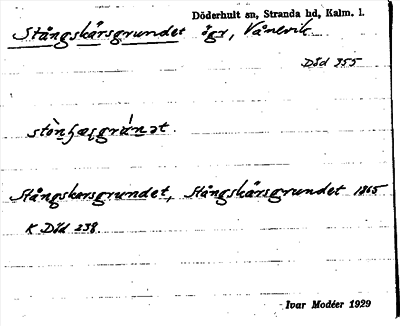 Döderhult sn, Stranda hd, Kalm. l.
Stångskärsgrundet ögr, Vånevik
DSd 355
Stångskorsgrundet, Stångskärsgrundet 1865
K DSd 238
Ivar Modéer 1929